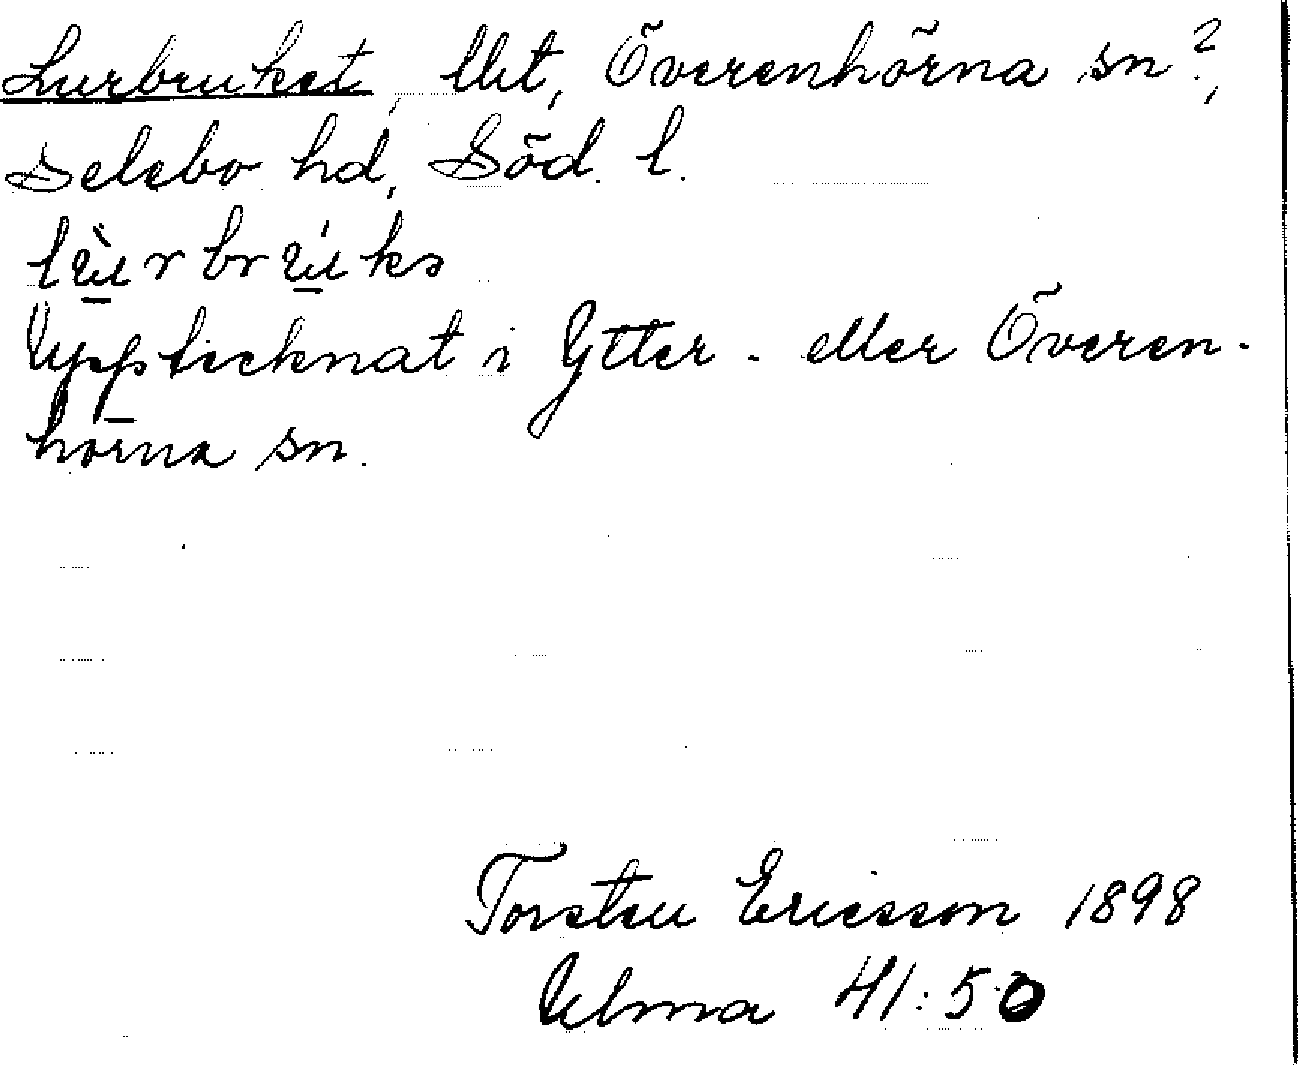 Lurbruket, llt, Överenhörna sn?,
Selebo hd, Söd. l.
lùrbrúks
Upptecknat i Ytter- eller Överen-
hörna sn.
Torsten Ericsson 1898
Ulma 41:50